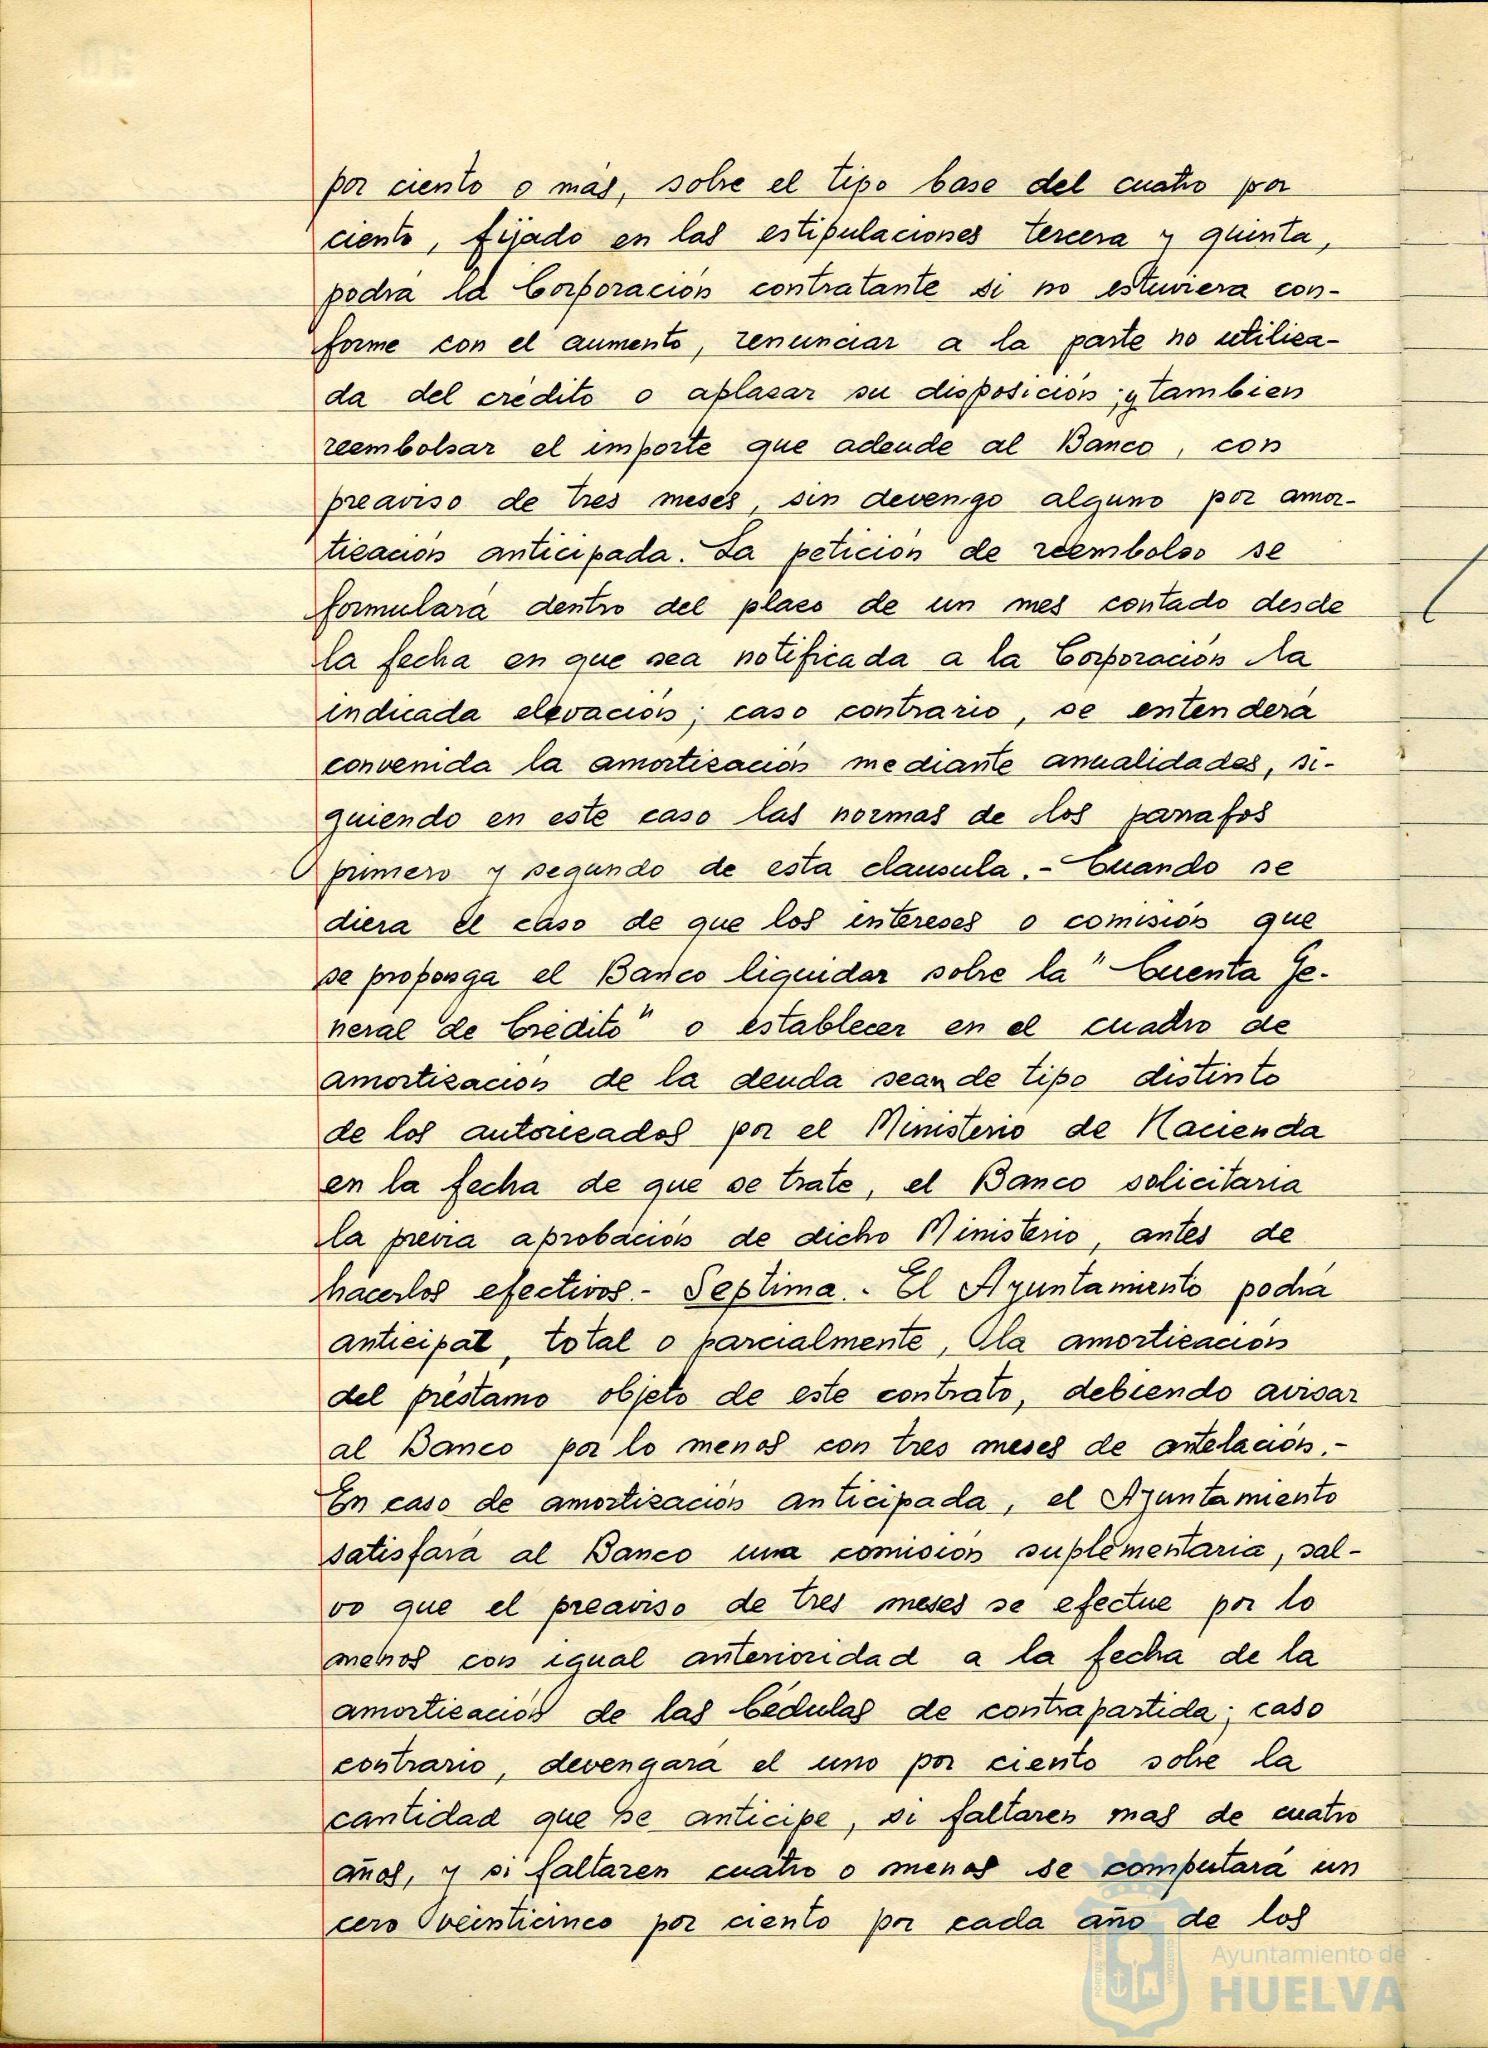 por ciento o más, sobre el tipo base del cuatro por
ciento, fijado en las estipulaciones tercera y quinta,
podrá la Corporación contratante si no estuviera con-
forme con el aumento, renunciar a la parte no utiliza-
da del crédito o aplazar su disposición; y tambien
reembolsar el importe que adeude al Banco, con
preaviso de tres meses, sin devengo alguno por amor-
tización anticipada. La petición de reembolso se
formulará dentro del plazo de un mes contado desde
la fecha en que sea notificada a la Corporación la
indicada elevación; caso contrario, se entenderá
convenida la amortización mediante anualidades, si-
guiendo en este caso las normas de los parrafos
primero y segundo de esta clausula.- Cuando se
diera el caso de que los intereses o comisión que
se proponga el Banco liquidar sobre la "Cuenta Ge-
neral de Crédito" o establecer en el cuadro de
amortización de la deuda sean de tipo distinto
de los autorizados por el Ministerio de Hacienda
en la fecha de que se trate, el Banco solicitaria
la previa aprobación de dicho Ministerio, antes de
hacerlos efectivos.- Septima.- El Ayuntamiento podrá
anticipar, total o parcialmente, la amortización
del préstamo objeto de este contrato, debiendo avisar
al Banco por lo menos con tres meses de antelación.-
En caso de amortización anticipada, el Ayuntamiento
satisfará al Banco una comisión suplementaria, sal-
vo que el preaviso de tres meses se efectue por lo
menos con igual anterioridad a la fecha de la
amortización de las Cédulas de contrapartida; caso
contrario, devengará el uno por ciento sobre la
cantidad que se anticipe, si faltaren mas de cuatro
años, y si faltaren cuatro o menos se computará un
cero veinticinco por ciento por cada año de los
Ayuntamiento de
HUELVA